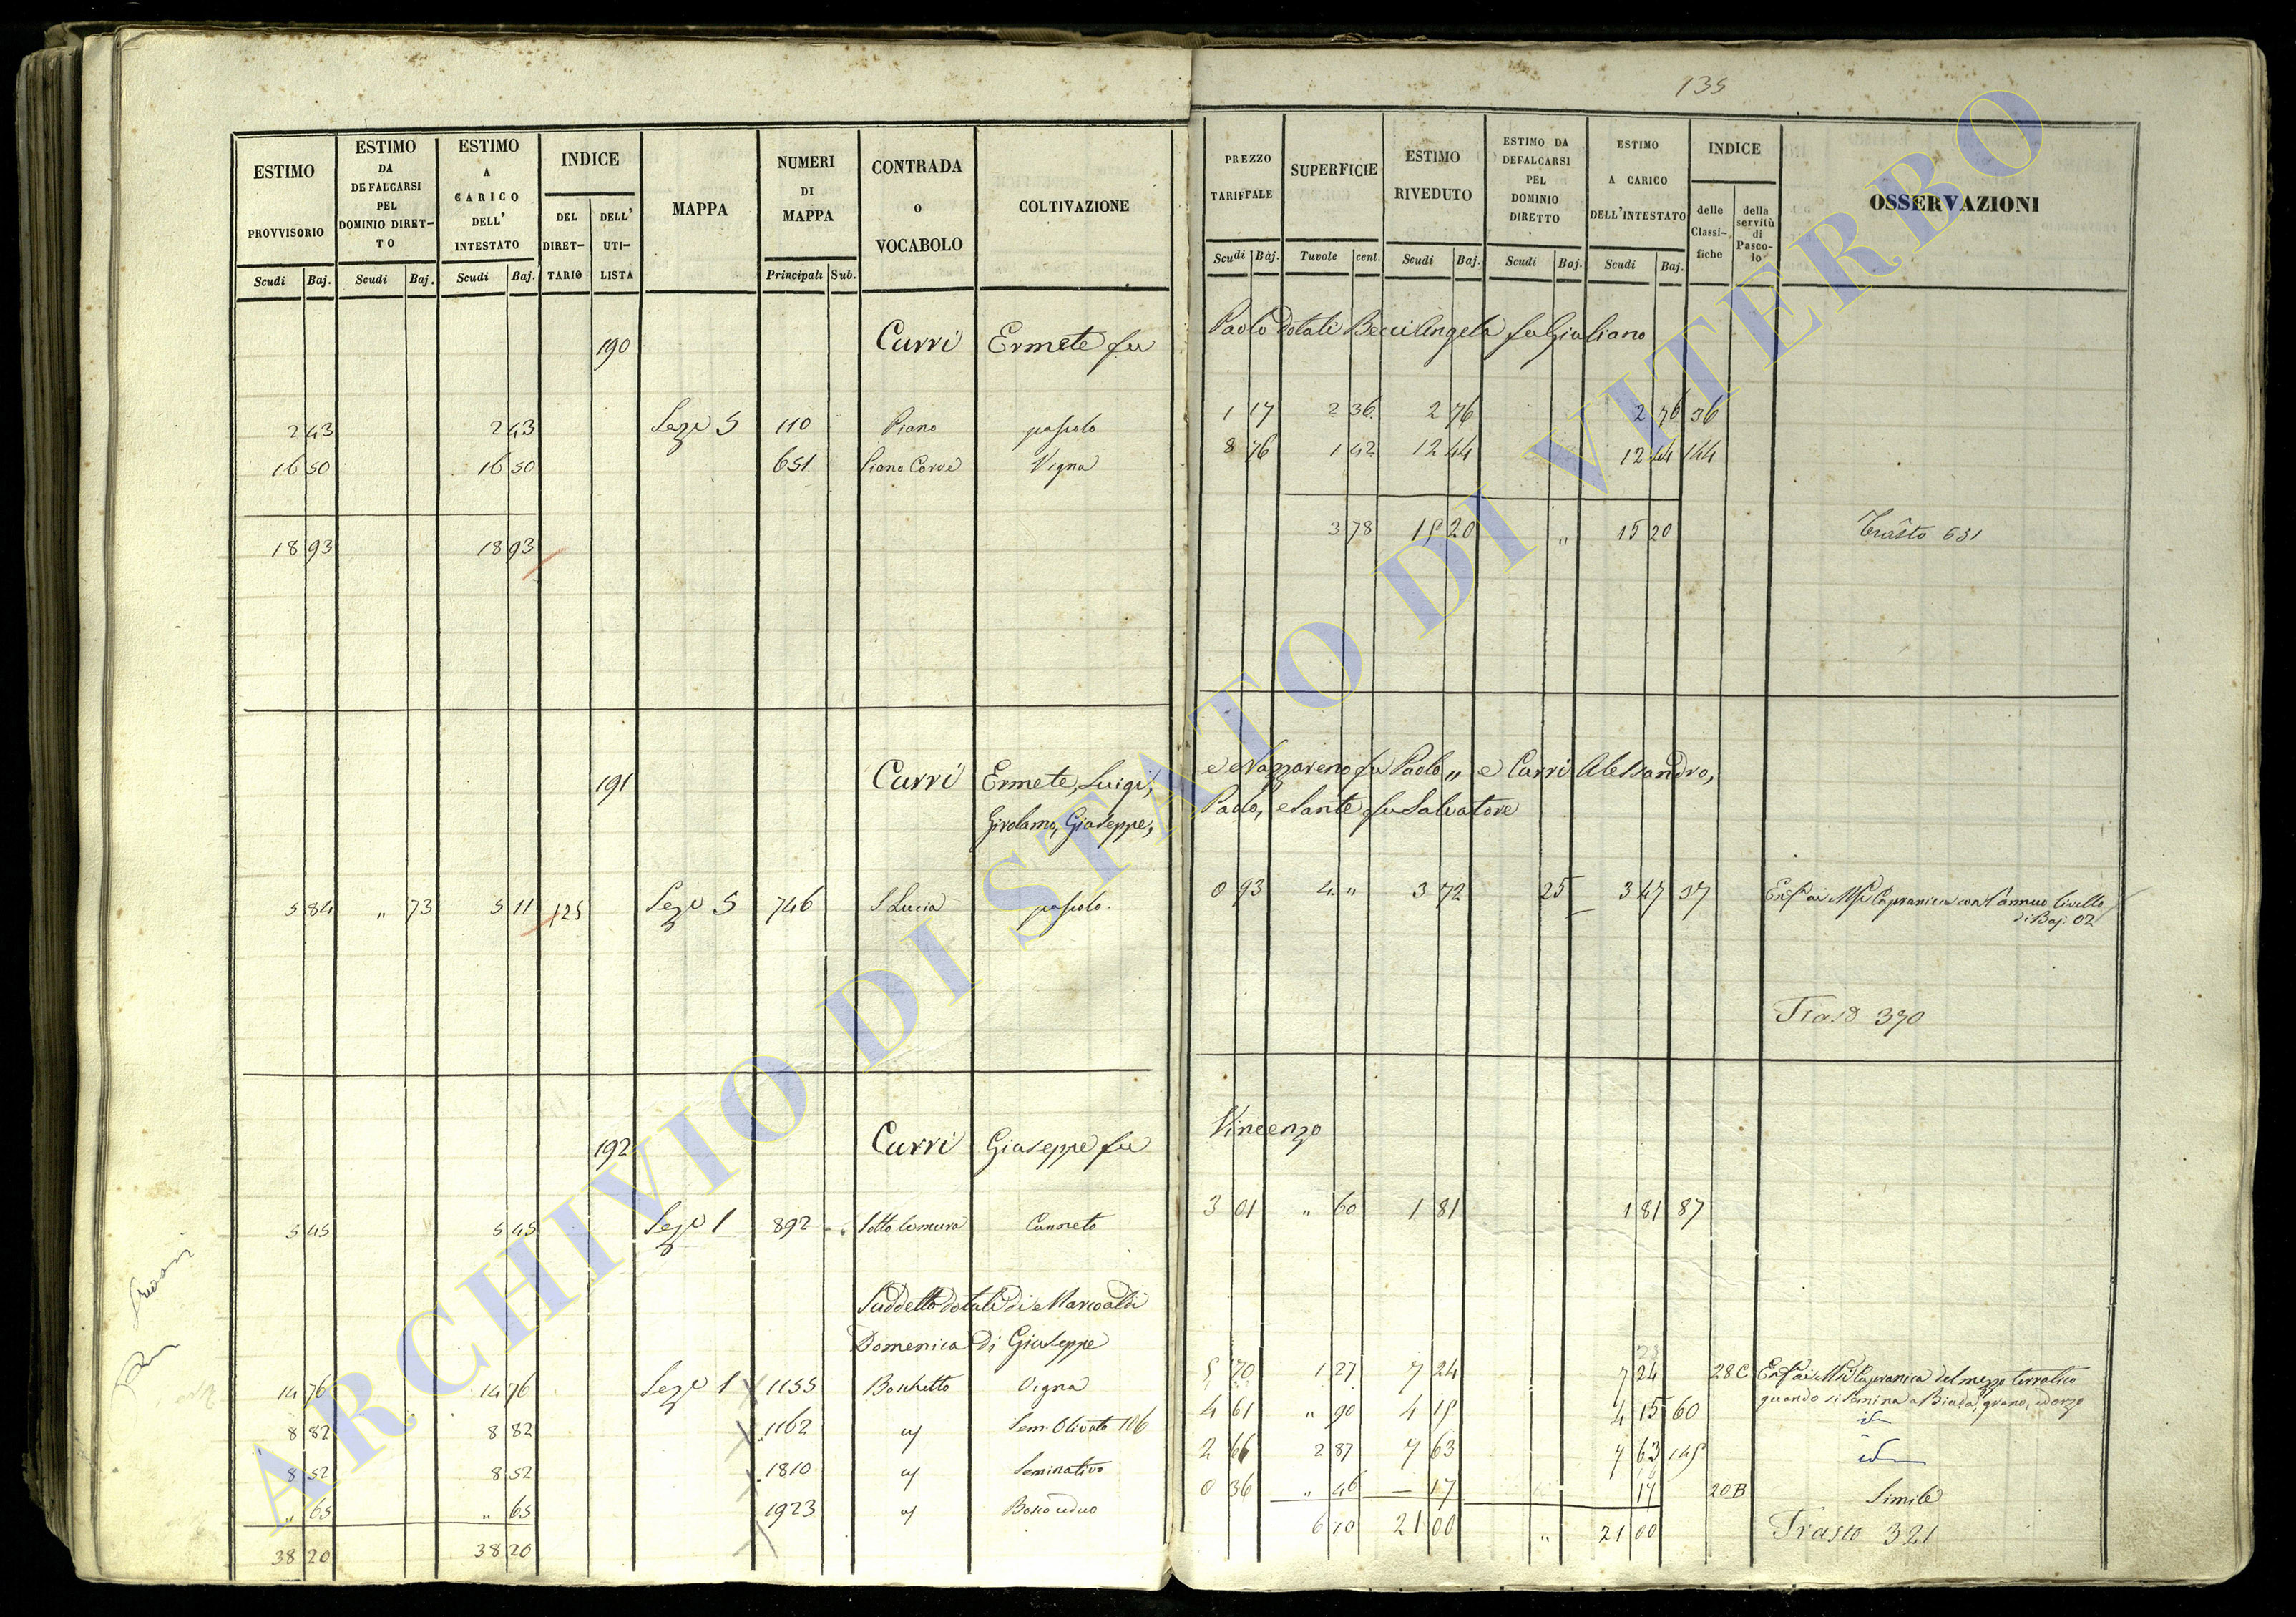 135
ESTIMO PROVVISORIO | ESTIMO DA DEFALCARSI PEL DOMINIO DIRETTO | ESTIMO A CARICO DELL' INTESTATO | INDICE | MAPPA | NUMERI DI MAPPA | CONTRADA O VOCABOLO | COLTIVAZIONE | PREZZO TARIFFALE | SUPERFICIE | ESTIMO RIVEDUTO | ESTIMO DA DEFALCARSI PEL DOMINIO DIRETTO | ESTIMO A CARICO DELL'INTESTATO | INDICE | OSSERVAZIONI
DEL DIRETTARIO | DELL' UTILISTA | delle Classifiche | della servitù di Pascolo
Scudi | Baj. | Scudi | Baj. | Scudi | Baj. | Principali | Sub. | Scudi | Baj. | Tavole | cent. | Scudi | Baj. | Scudi | Baj. | Scudi | Baj.
190 Curri Ermete fu Paolo dotali Becci Angela fu Giuliano
2 43 | 2 43 | Seze 5 | 110 | Piano | pascolo | 1 17 | 2 36 | 2 76 | 2 76 | 36
16 50 | 16 50 | 651 | Piano Corve | Vigna | 8 76 | 1 42 | 12 44 | 12 44 | 144
18 93 | 18 93 | 3 78 | 15 20 | " | 15 20 | Trasto 631
191 Curri Ermete, Luigi, e Nazzareno fu Paolo „ e Curri Alessandro,
Girolamo, Giuseppe, Paolo, e Sante fu Salvatore
5 84 | " 73 | 5 11 | 125 | Seze 5 | 746 | S Lucia | pascolo. | 0 93 | 4 " | 3 72 | 25 | 3 47 | 37 | Enfa ai Capranica con l'annuo livello
di Baj: 02
Trasto 370
192 Curri Giuseppe fu Vincenzo
5 45 | 5 45 | Seze 1 | 892 | Sotto le mura | Canneto | 3 01 | " 60 | 1 81 | 1 81 | 87
Suddetto dotali di Marcoaldi
Domenica di Giuseppe
14 76 | 14 76 | Seze 1 | 1155 | Boschetto | Vigna | 5 70 | 1 27 | 7 24 | 7 24 | 28C | Enfa ai Capranica del mezzo terratico
quando si semina a Biada, grano, ed orzo
8 82 | 8 82 | 1162 | " | Sem. Olivato 106 | 4 61 | " 90 | 4 15 | 4 15 | 60 | id
8 52 | 8 52 | 1810 | " | Seminativo | 2 66 | 2 87 | 7 63 | 7 63 | 145 | id
" 65 | " 65 | 1923 | " | Bosco ceduo | 0 36 | " 46 | — 17 | 17 | 20B | Simile
38 20 | 38 20 | 6 10 | 21 00 | " | 21 00 | Trasto 321
ARCHIVIO DI STATO DI VITERBO